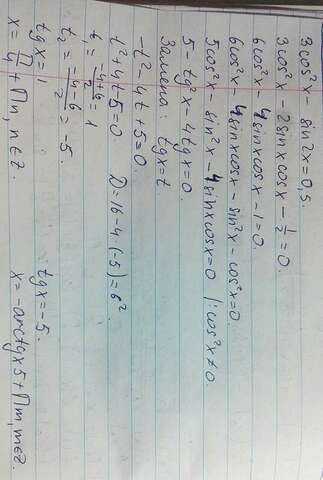 3cos²x - sin2x = 0,5.
3cos²x - 2sinxcosx - 1/2 = 0.
6cos²x - 4sinxcosx - 1 = 0.
6cos²x - 4sinxcosx - sin²x - cos²x = 0.
5cos²x - sin²x - 4sinxcosx = 0 |:cos²x ≠ 0
5 - tg²x - 4tgx = 0.
Замена: tgx = t
-t² - 4t + 5 = 0.
t² + 4t - 5 = 0. D = 16 - 4·(-5) = 6²
t₁ = (-4+6)/2 = 1
t₂ = (-4-6)/2 = -5.
tgx = 1 tgx = -5.
x = П/4 + Пn, n∈Z. x = -arctgx5 + Пm, m∈Z.